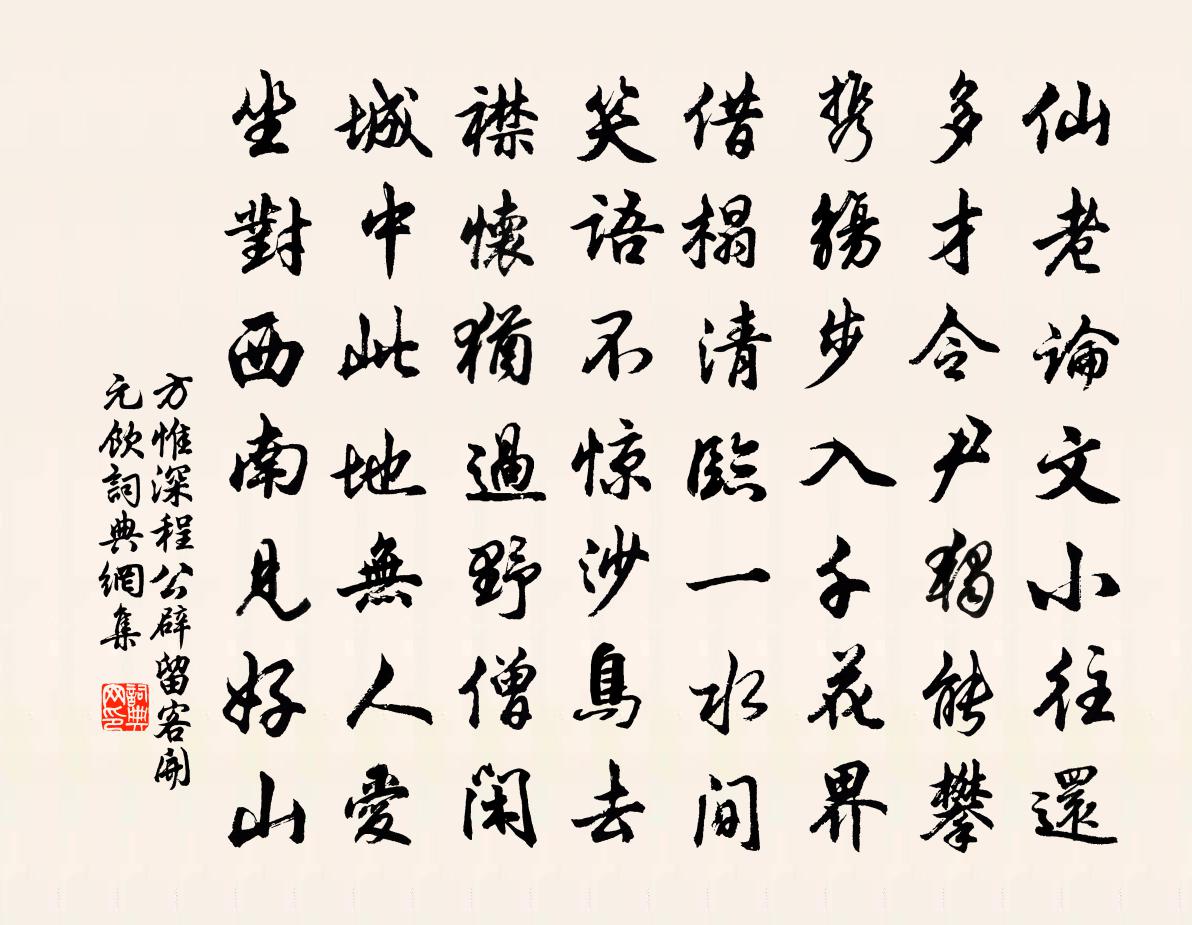 仙老論文小往還
多才令尹獨能攀
携觴步入千花界
借榻清臨一水間
笑語不惊沙鳥去
襟懷猶過野僧閑
城中此地無人愛
坐對西南見好山
方惟深程公辟留客開
元飲詞典網集
詞典网印